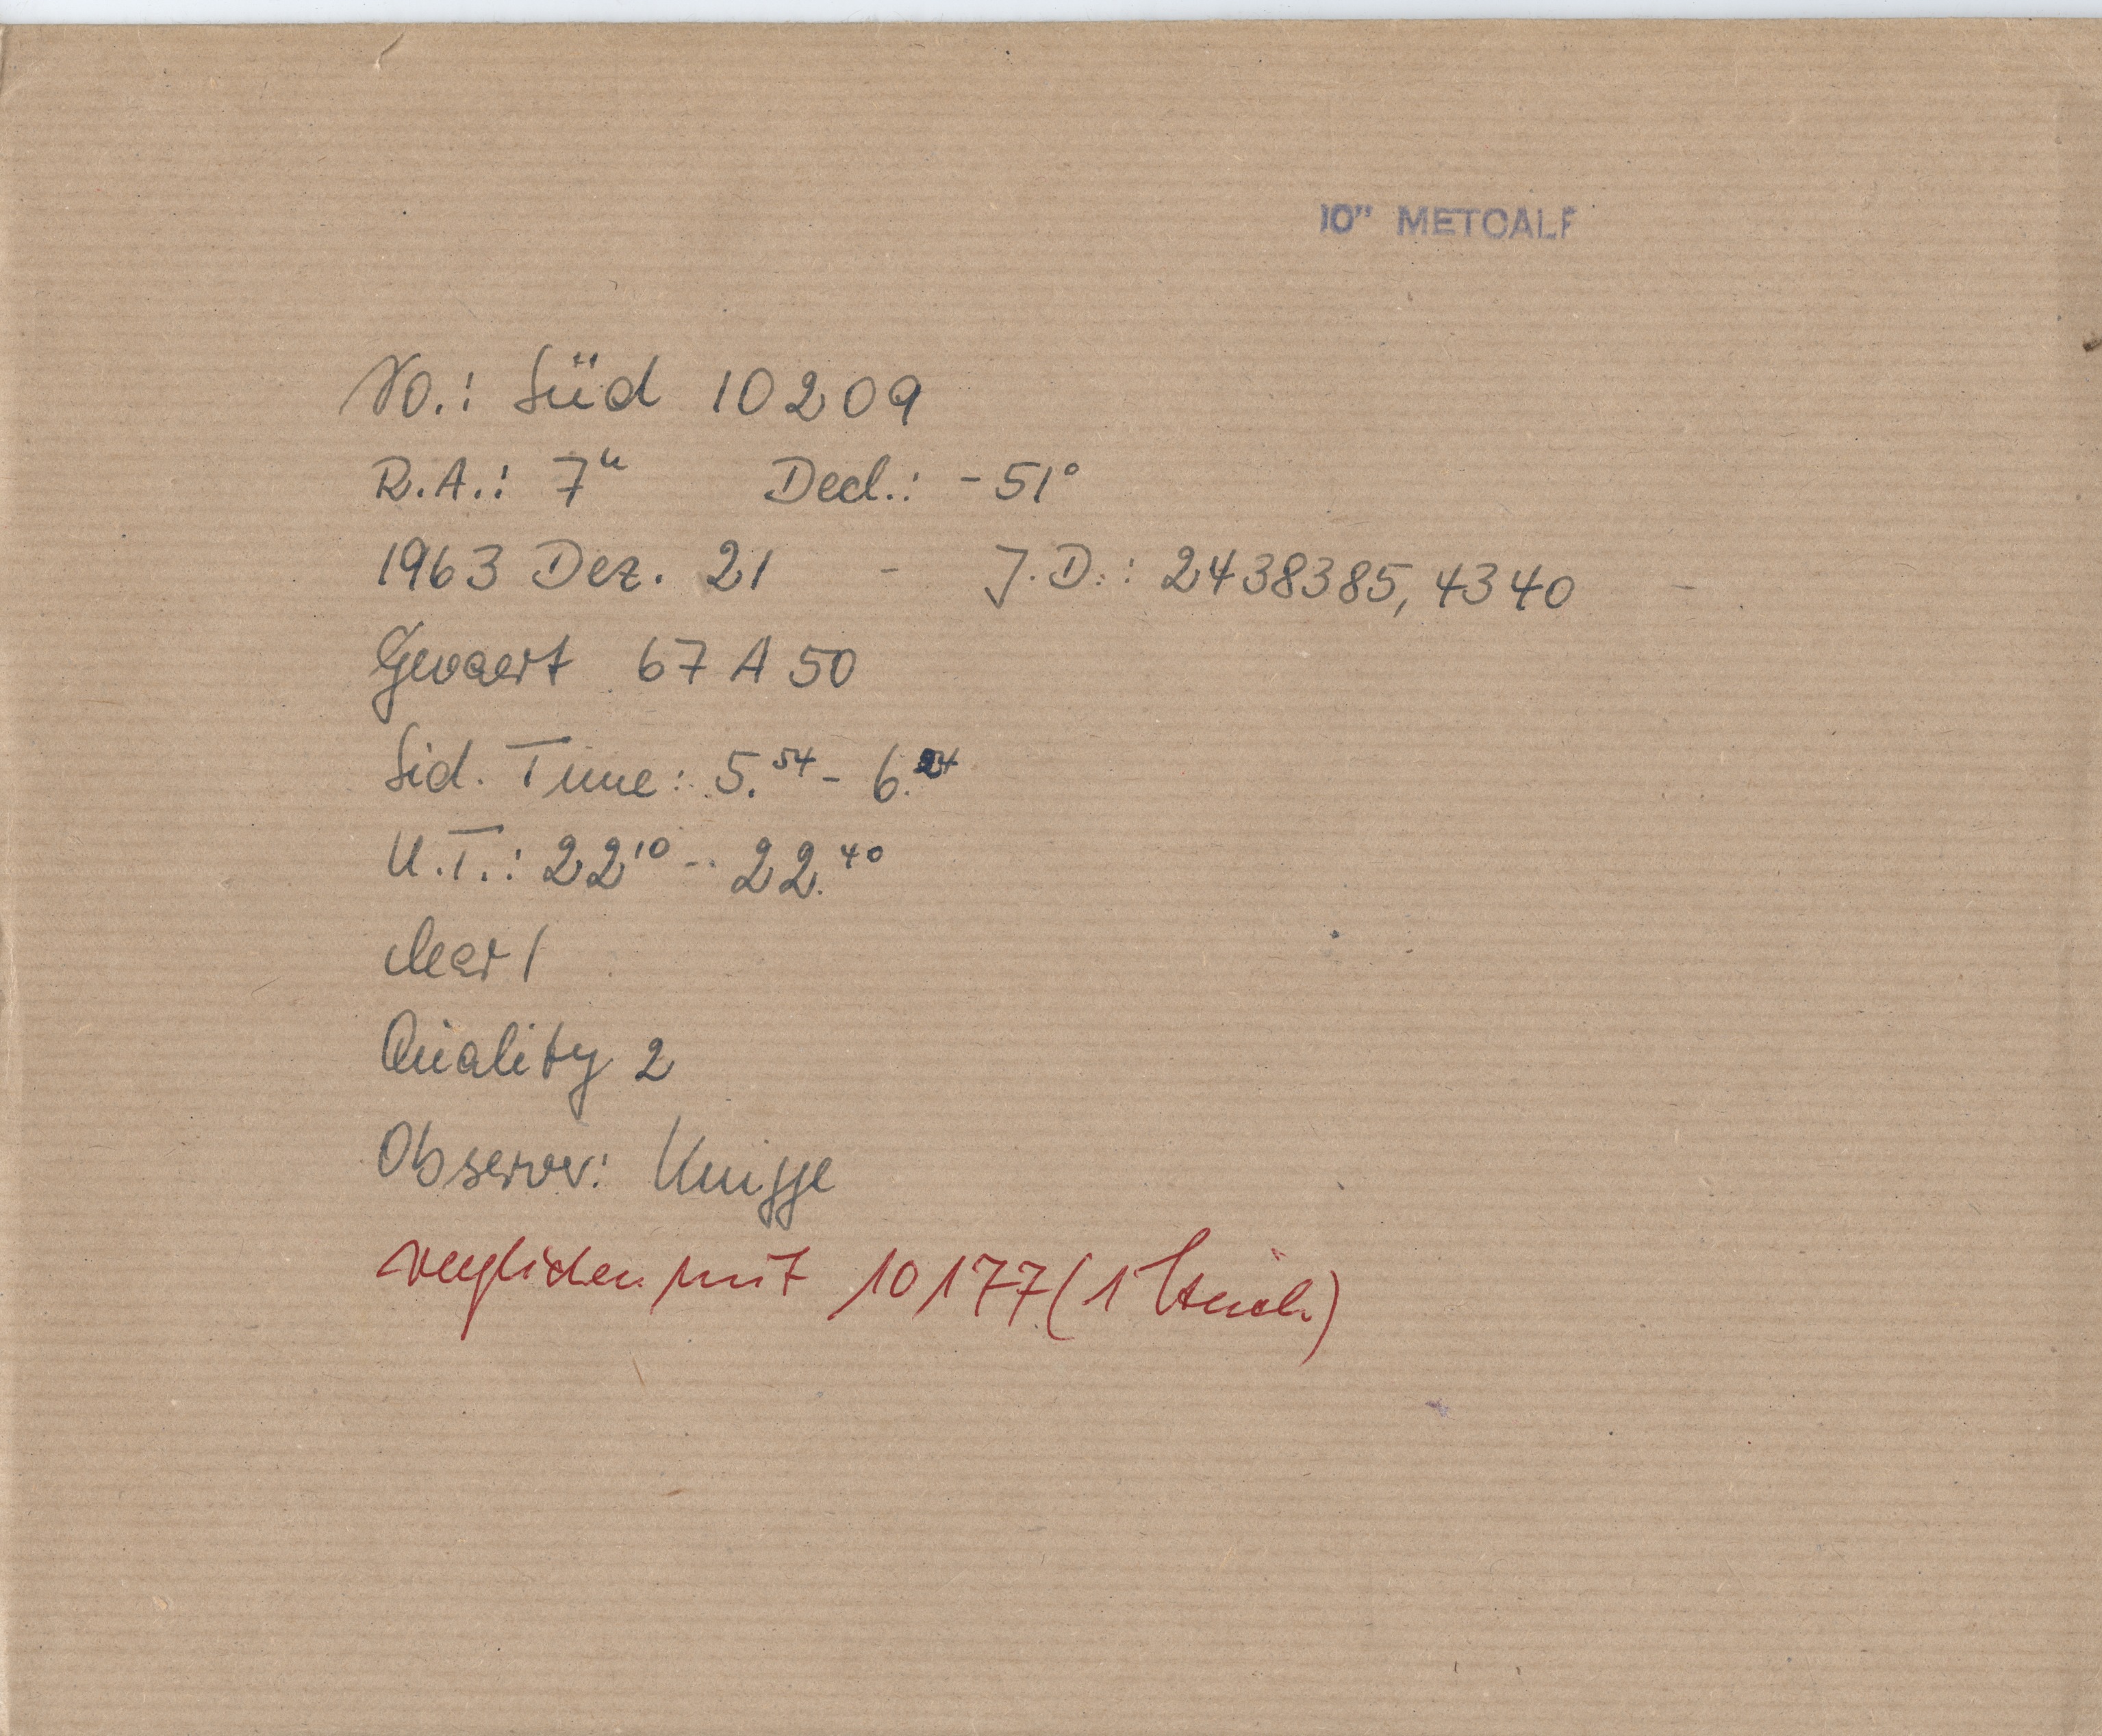 10" METCALF
No.: Süd 10209
R.A.: 7ʰ Decl.: -51°
1963 Dez. 21 - J.D.: 2438385,4340 -
Gevaert 67 A 50
Sid. Time: 5.⁵⁴ - 6.²⁴
U.T.: 22¹⁰ - 22.⁴⁰
clear 1
Quality 2
Observer: Knigge
verglichen mit 10177 (1